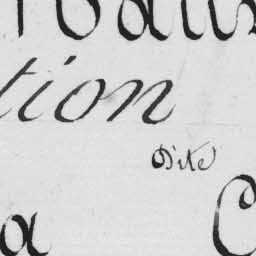 tion
Dite
a C